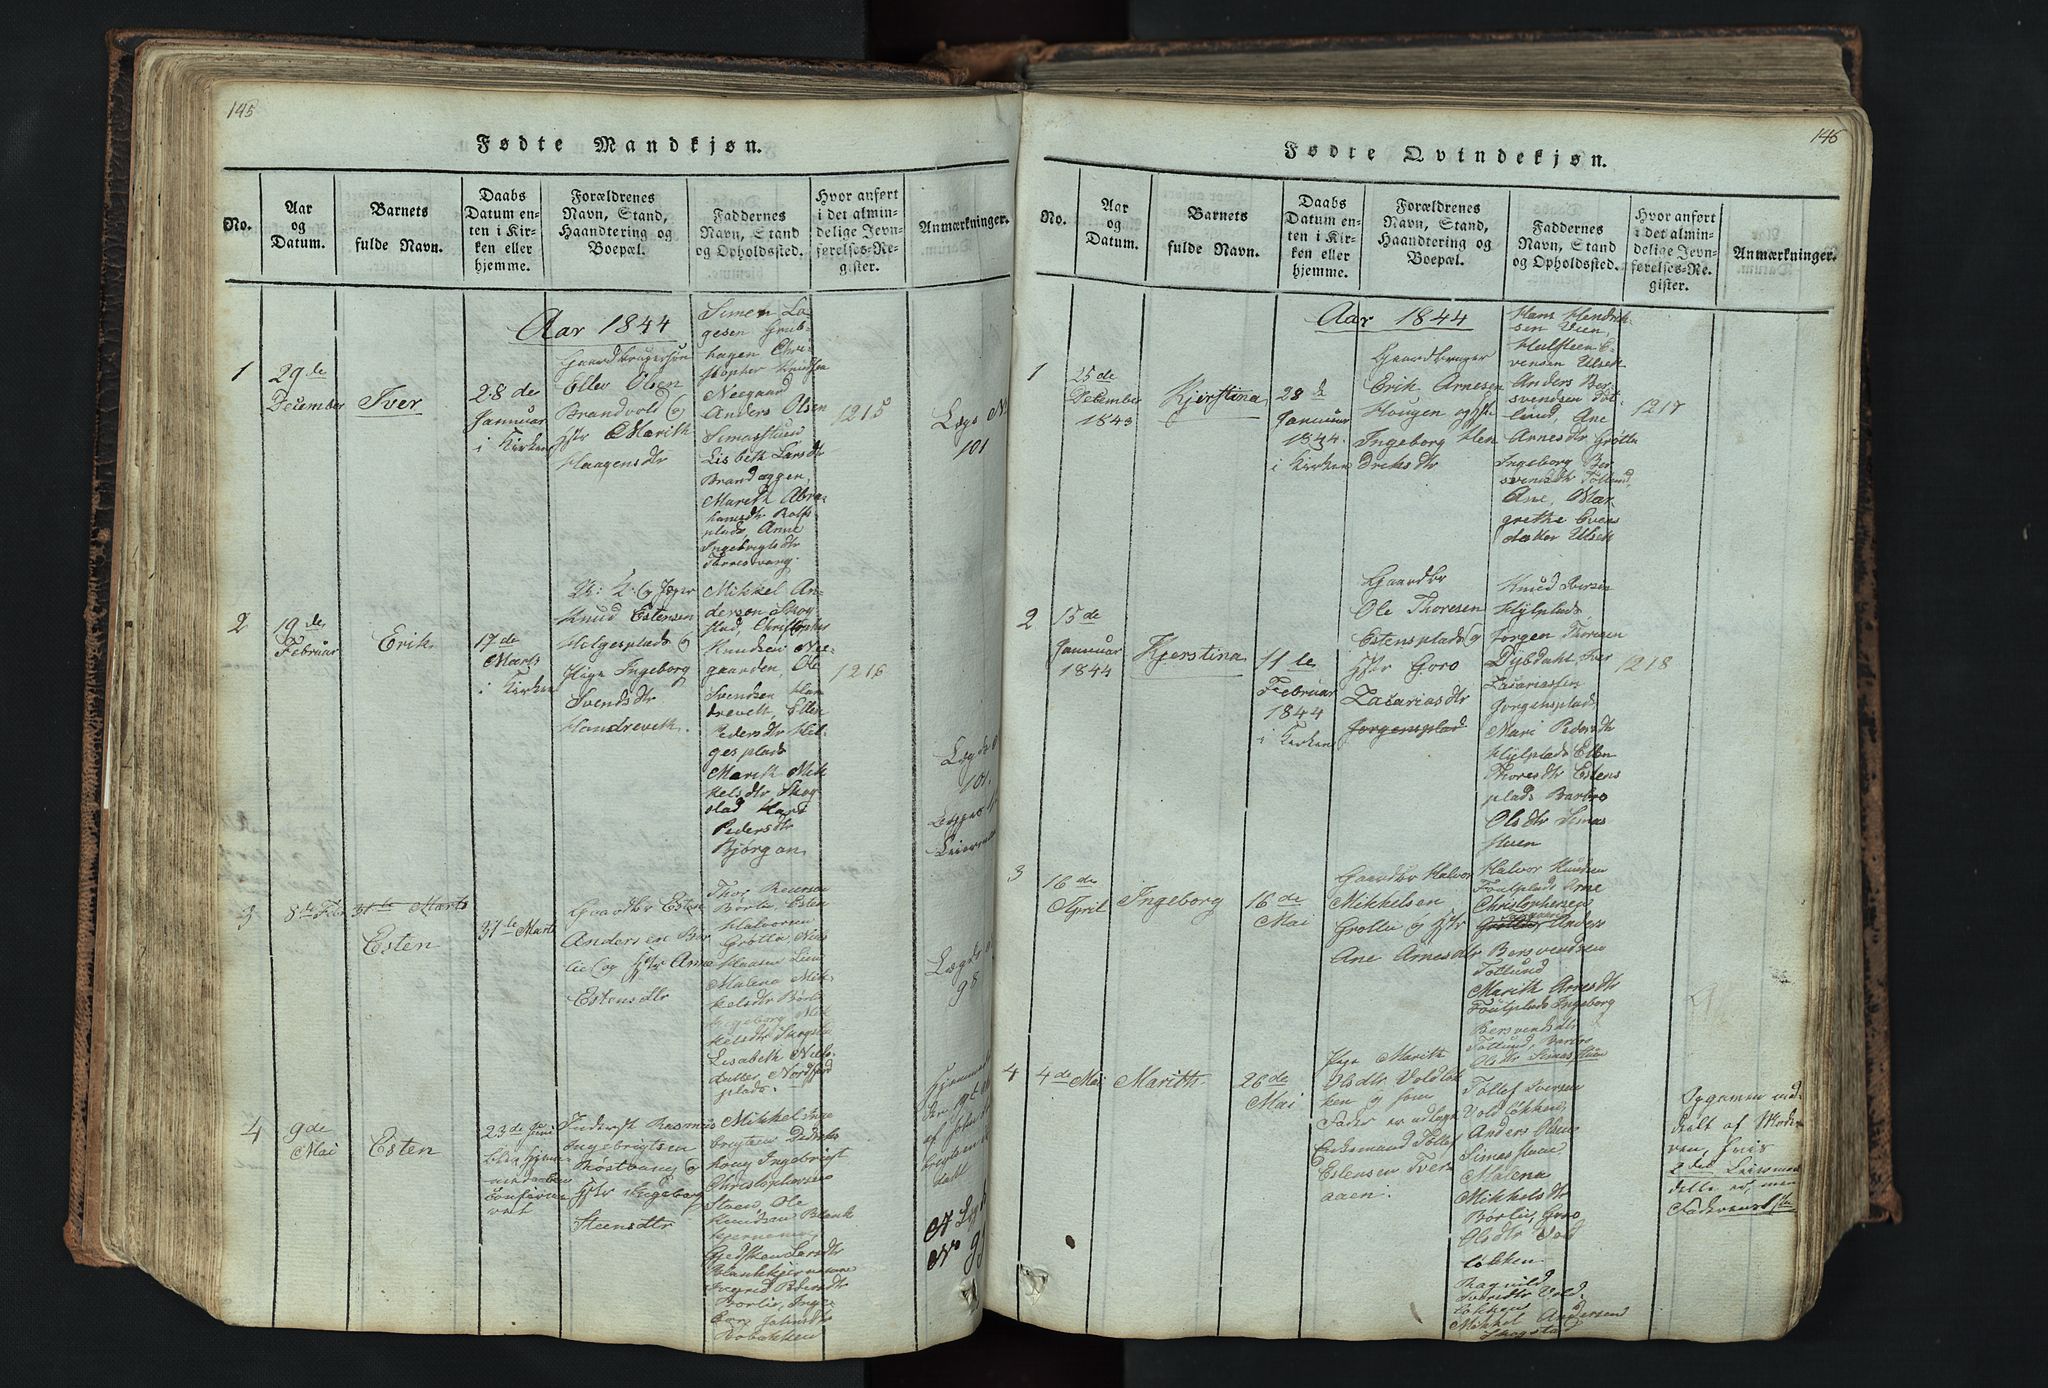 145
Fødte Mandkjøn.
No.
Aar
og
Datum.
Barnets
fulde Navn.
Daabs
Datum en-
ten i Kir-
ken eller
hjemme.
Forældrenes
Navn, Stand,
Haandtering og
Boepæl.
Faddernes
Navn, Stand
og Opholdssted.
Hvor anført
i det almin-
delige Jevn-
førelses-Re-
gister.
Anmærkninger.
Aar 1844
1
29de
December
Iver
28de
Januar
i Kirken
Gaardbrugersøn
Ellev Olsen
Brandvold og
Hstr Marith
Haagensdtr
Simen La-
gesen Grub-
hagen Chri-
stopher Knudsen
Neegaard
Anders Olsen
Simastuen
Lisbeth Larsdtr
Brandæggen,
Marith Abra-
hamsdtr Rolfs-
plads, Anne
Ingebrigtsdtr
1215
Lægs No
101
2
19de
Februar
Erik
17de
Marts
i Kirken
Knud Estensen
Helgesplads og
Pige Ingeborg
Svendsdtr
Handreveth.
Mikkel An-
dersen Skog-
stad, Christopher
Knudsen Nee-
gaarden, Ole
Svendsen Han
dreveth, Ellen
Pedersdtr Hel-
gesplads
Marith Mik
kelsdtr Skog-
stad
Pedersdtr
Bjørgan
1216
Lægds
101.
3
8de Feb
31te Marts
Esten
31te Marts
Gaardbr Esten
Andersen Bør
lie og Hstr Anne
Estensdtr
Børlie, Esten
Halvorsen
Grøtte, Nils
Malena Mik-
kelsdtr Børli
Ingeborg Mik
kelsdtr Skogsta
Lisabeth Niels-
datter Nordfjord
plads.
Lægds
98
4
9de
Mai
Esten
23de Juni
blev hjem-
medaaben
confirme-
ret
Inderst Rasmus
Ingebrigtsen
Røstvang og
Hstr Ingeborg
Steensdtr
Mikkel Inge
brigtsen
haug Ingebrigt
Christophersen
Støen, Ole
Knudsen Blank
kjernmoe,
Larsdtr
Ingrid Pedersdtr
Borlie, Inge-
borg Johnsdtr
af Johan
Læg
No 95
146
Fødte Qvindekjøn.
No.
Aar
og
Datum.
Barnets
fulde Navn.
Daabs
Datum en-
ten i Kir-
ken eller
hjemme.
Forældrenes
Navn, Stand,
Haandtering og
Boepæl.
Faddernes
Navn, Stand
og Opholdssted.
Hvor anført
i det almin-
delige Jevn-
førelses-Re-
gister.
Anmærkninger.
Aar 1844
1
25de
December
1843
Kjerstina
28de
Januar
1844
i Kirken
Gaardbruger
Erik Arnesen
Hougen og Hstr
Ingeborg Hen
driksdtr
Hans Hendrik-
sen Vien,
Halsteen E-
vensen Ulsek
Anders Ber-
svendsen Tøt-
lund, Ane
Arnesdtr Grøtte
Ingeborg Ber
svendsdtr Tøtlund,
Ane Mar
grethe Evens
datter Ulsek
1217
2
15de
Januar
1844
Kjerstina
11te
Februar
1844
i Kirken
Gaardbr
Ole Thoresen
Estensplads og
Hstr Goro
Zacariasdtr
Jorgensplad
Knud Iversen
Hylplads
Jørgen Thoresen
Dybdahl, Iver
Zacariassen
Jørgensplads
Mari Pedersdtr
Hylplads Ellen
Thoresdtr Estens
plads Barbro
Olsdtr Simas
stuen
1218
3
16de
April
Ingeborg
16de
Mai
Gaardbr Halvor
Mikkelsen
Grøtte og Hstr
Ane Arnesdtr
Halvor Knudsen
Foutplads Arne
Christophersen
Anders
Bersvendsen
Tøtlund
Marith Arnesdtr
Foutplads Ingeborg
Bersvendsdtr
Tøtlund, Barbro
Olsdtr Simasstuen
4
4de Mai
Marith
26de
Mai
Pige Marith
Olsdtr Voldløk
ken og som
Fader er udlagt
Enkemand Tollef
Estensen Tver
aaen.
Tollef Iversen
Voldløkken,
Anders Olsen
Simastuen
Malena
Mikkelsdtr
Børlie, Goro
Olsdtr Vold
løkken.
Ragnild
Iversdtr Vold-
løkken
Mikkel Andersen
Skogstad
Opgaven med
deelt af Mode
ren, hvis
2det Leiermaal
dette er, men
Faderens 1ste